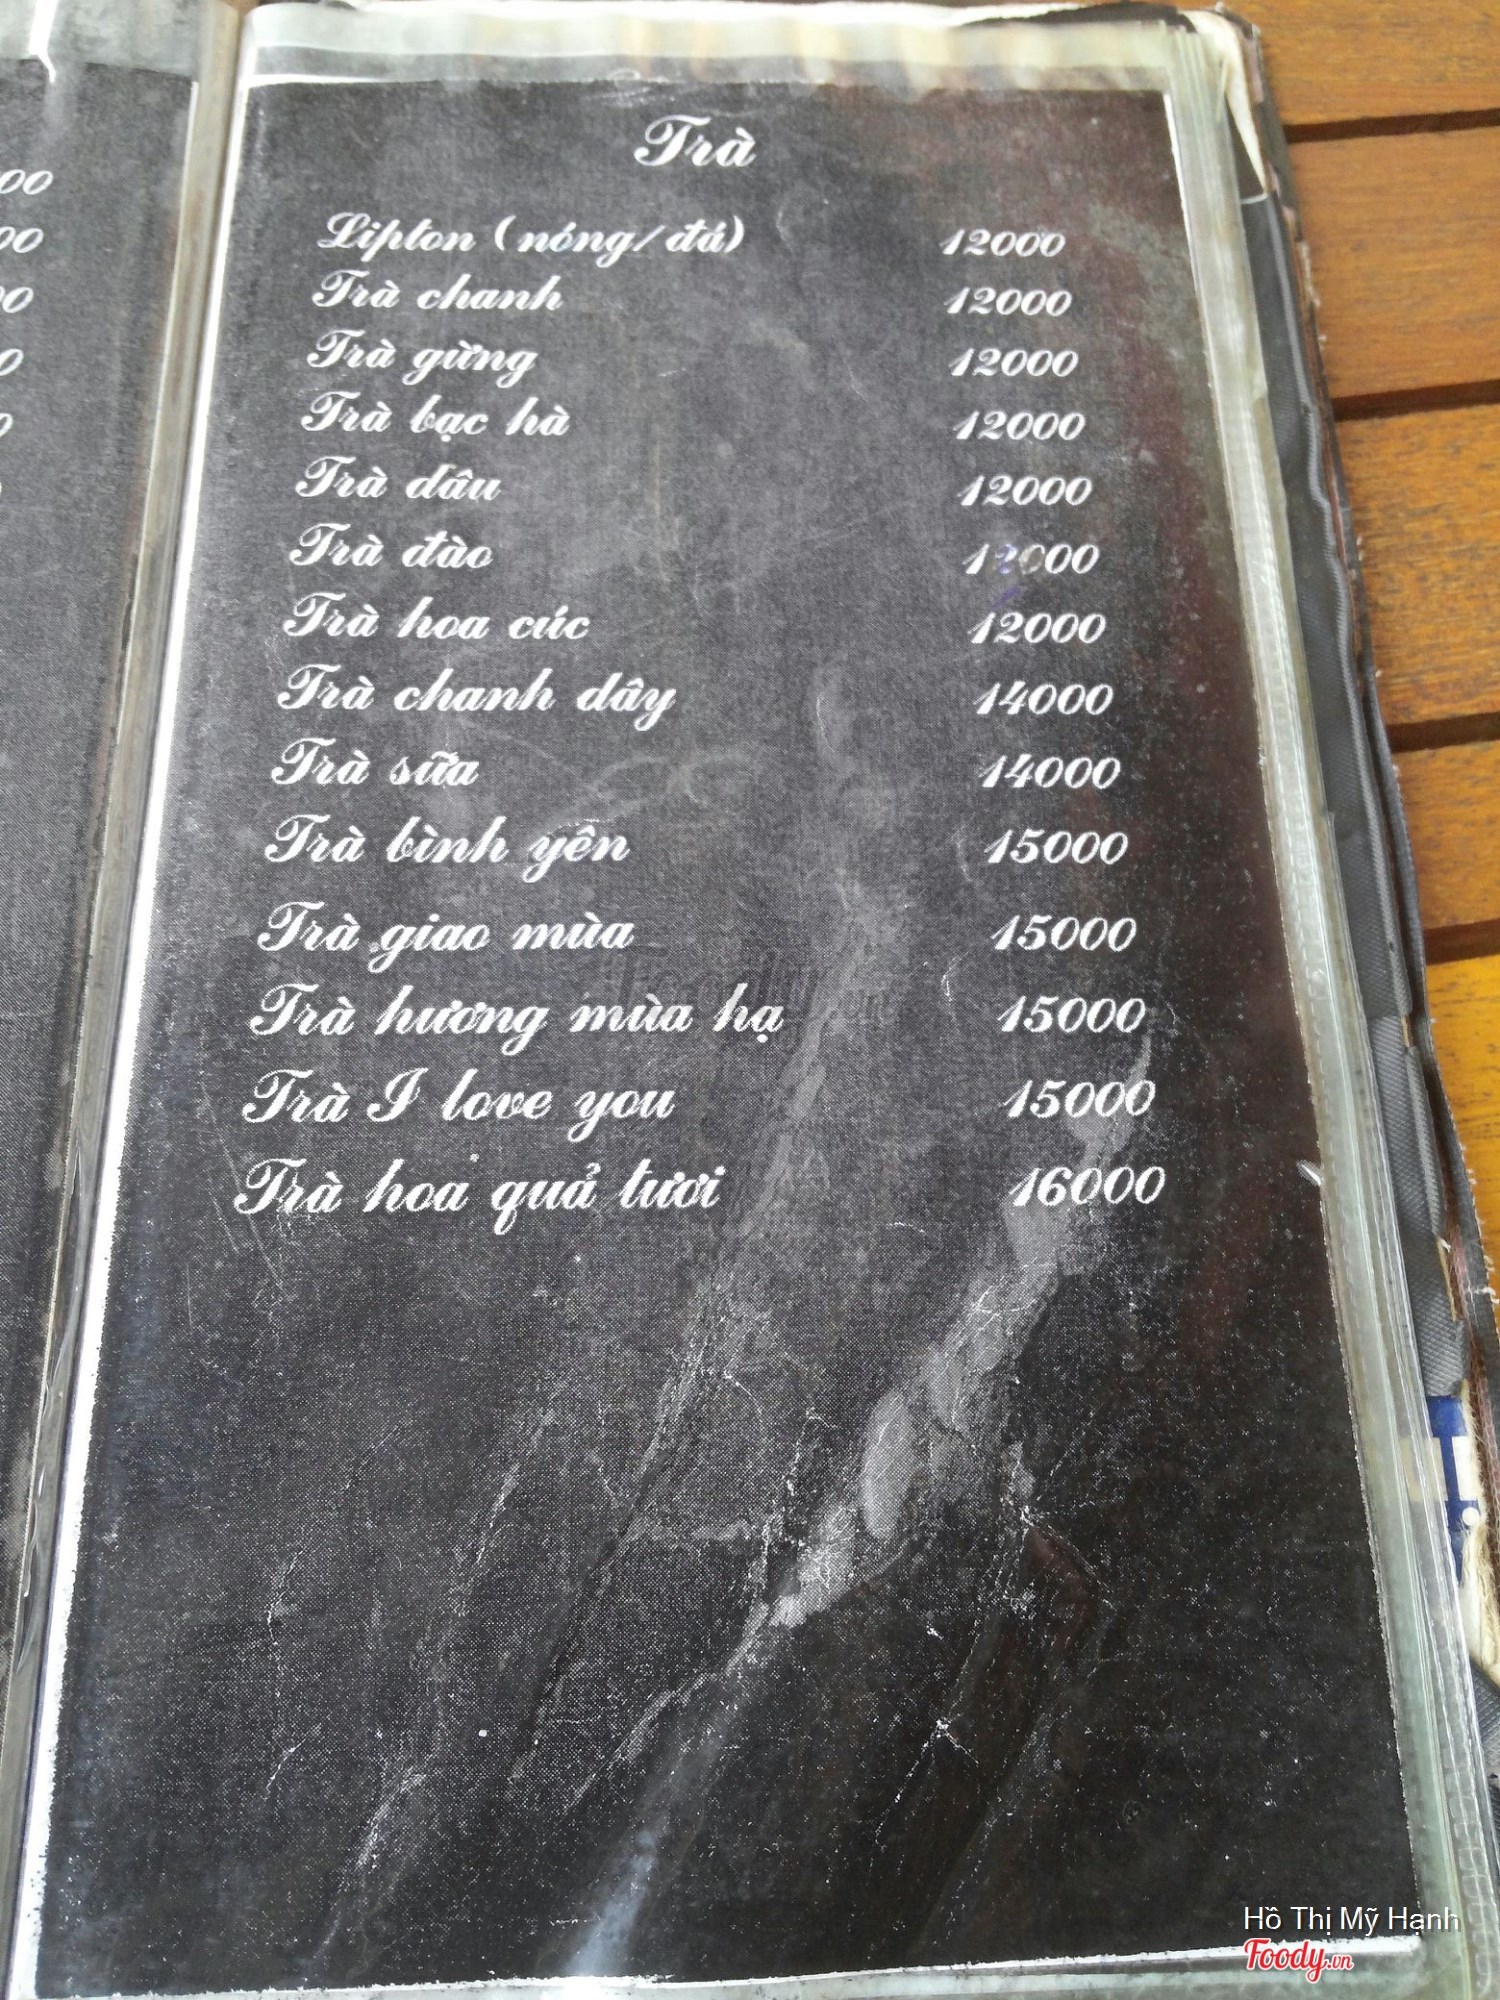 Trà
Lipton (nóng/đá) 12000
Trà chanh 12000
Trà gừng 12000
Trà bạc hà 12000
Trà dâu 12000
Trà đào 12000
Trà hoa cúc 12000
Trà chanh dây 14000
Trà sữa 14000
Trà bình yên 15000
Trà giao mùa 15000
Trà hương mùa hạ 15000
Trà I love you 15000
Trà hoa quả tươi 16000
Hồ Thị Mỹ Hạnh
Foody.vn